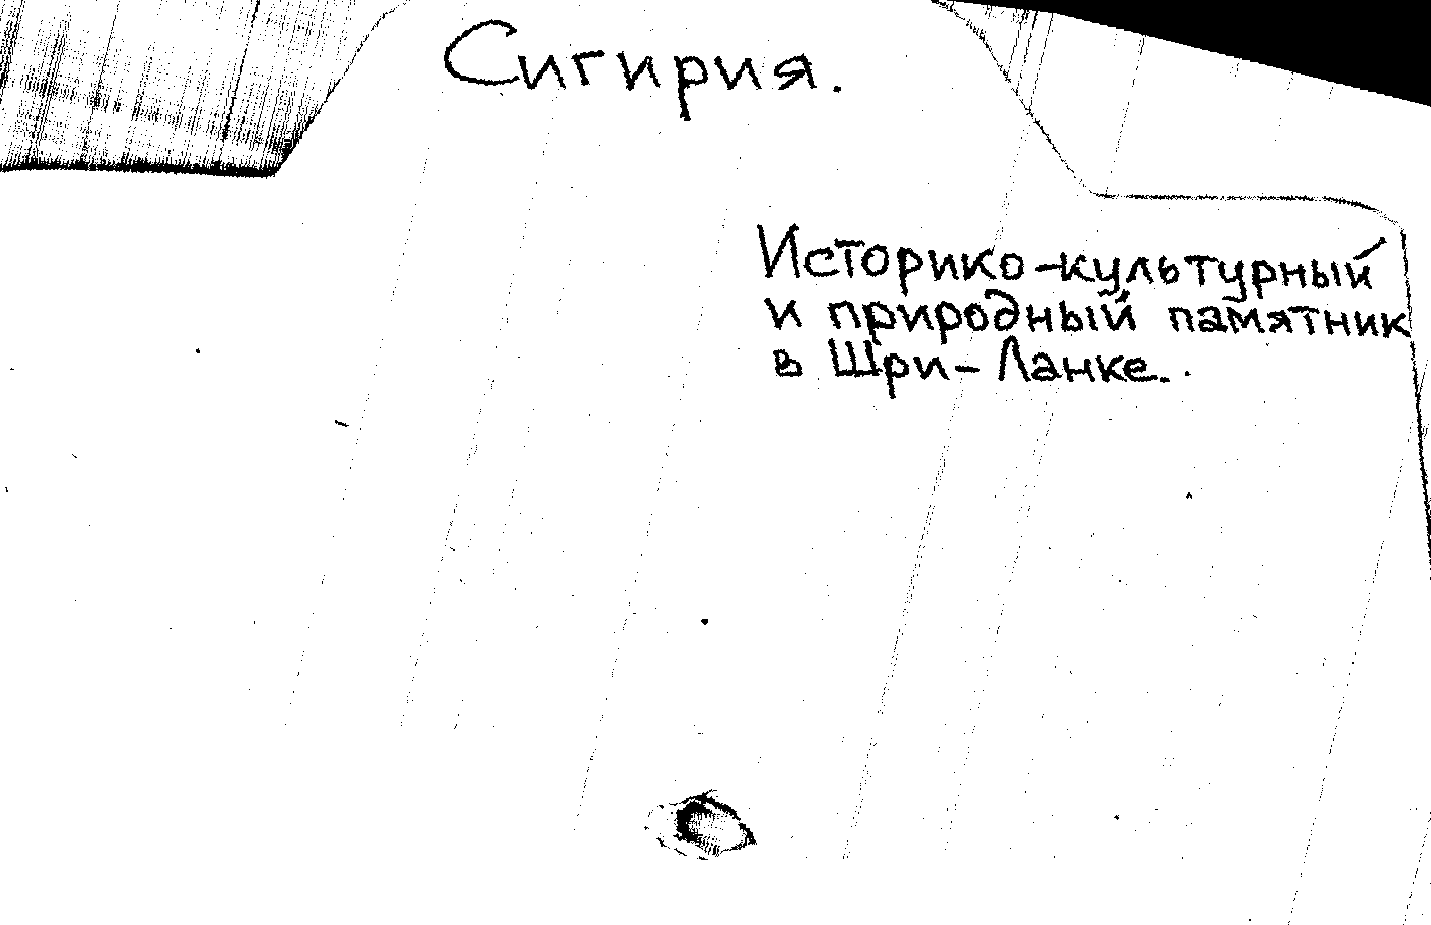 Сигирия.
Историко-культурный
и природный памятник
в Шри-Ланке.